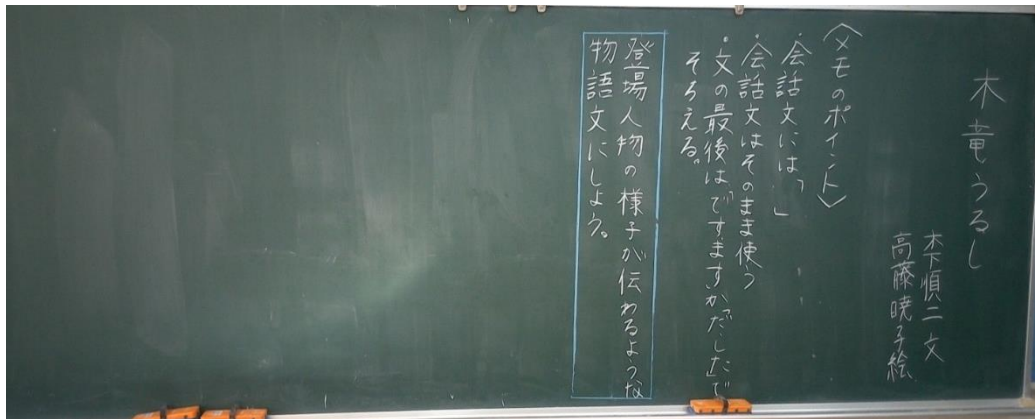 木竜うるし
木下順二 文
高藤暁子絵
〈メモのポイント〉
・会話文には、「」
・会話文はそのまま使う
・文の最後は、「ですます」か「だ・した」で
そろえる。
登場人物の様子が伝わるような
物語文にしよう。